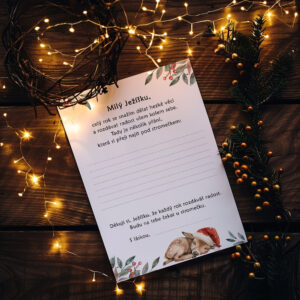 Milý Ježíšku,
celý rok se snažím dělat hezké věci
a rozdávat radost všem kolem sebe.
Tady je několik přání,
která si přeji najít pod stromečkem.
Děkuji ti, Ježíšku, že každý rok rozdáváš radost.
Budu na tebe čekat u stromečku.
S láskou,